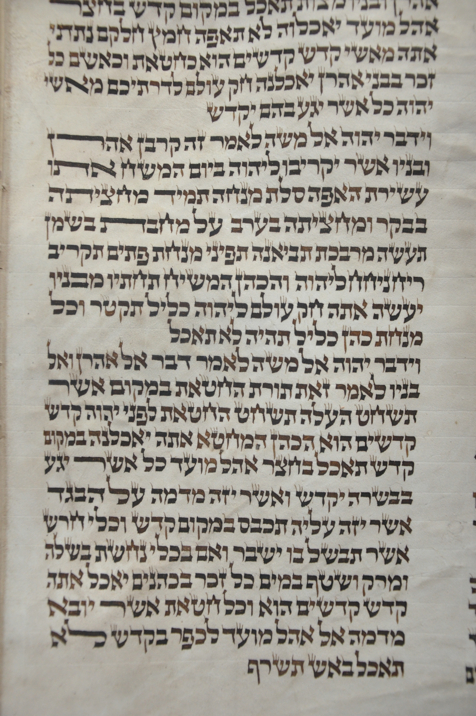 אהרן ובניו מצות תאכל במקום קדש בחצר
אהל מועד יאכלוה לא תאפה חמץ חלקם נתתי
אתה מאשי קדש קדשים הוא כחטאת וכאשם כל
זכר בבני אהרן יאכלנה חק עולם לדרתיכם מאשי
יהוה כל אשר יגע בהם יקדש
וידבר יהוה אל משה לאמר זה קרבן אהרן
ובניו אשר יקריבו ליהוה ביום המשח אתו
עשירת האפה סלת מנחה תמיד מחציתה
בבקר ומחציתה בערב על מחבת בשמן
תעשה מרבכת תביאנה תפיני מנחת פתים תקריב
ריח ניחח ליהוה והכהן המשיח תחתיו מבניו
יעשה אתה חק עולם ליהוה כליל תקטר וכל
מנחת כהן כליל תהיה לא תאכל
וידבר יהוה אל משה לאמר דבר אל אהרן ואל
בניו לאמר זאת תורת החטאת במקום אשר
תשחט העלה תשחט החטאת לפני יהוה קדש
קדשים הוא הכהן המחטא אתה יאכלנה במקום
קדש תאכל בחצר אהל מועד כל אשר יגע
בבשרה יקדש ואשר יזה מדמה על הבגד
אשר יזה עליה תכבס במקום קדש וכלי חרש
אשר תבשל בו ישבר ואם בכלי נחשת בשלה
ומרק ושטף במים כל זכר בכהנים יאכל אתה
קדש קדשים הוא וכל חטאת אשר יובא
מדמה אל אהל מועד לכפר בקדש לא
תאכל באש תשרף